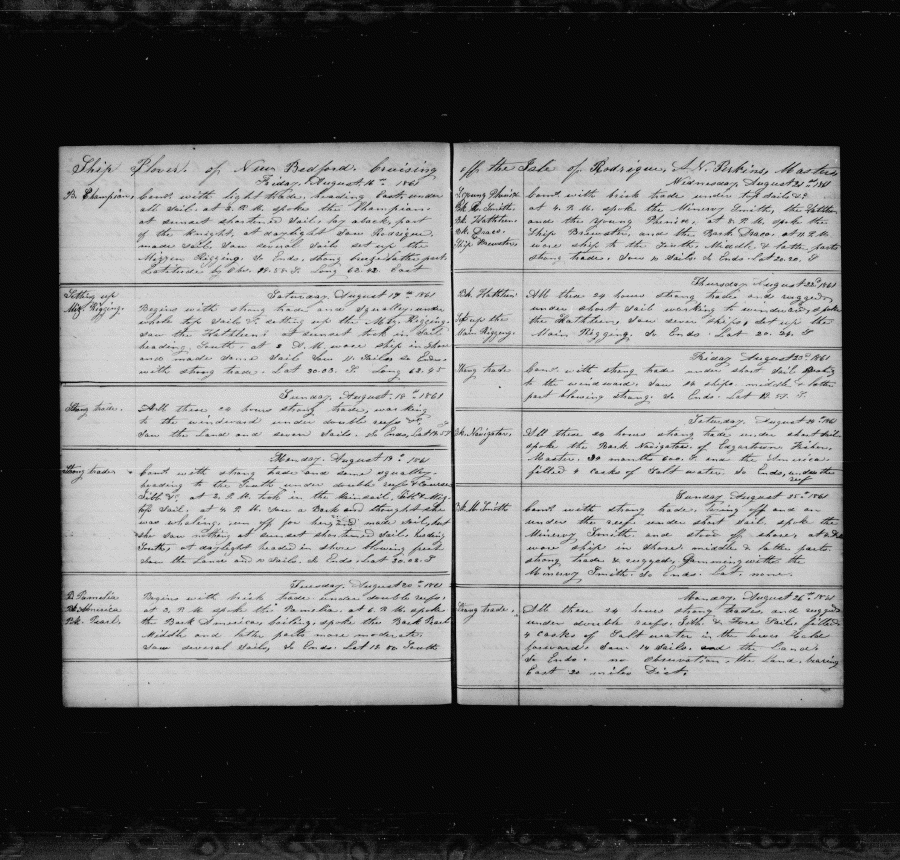 Ship Plover of New Bedford. Cruising
Friday August 16th 1861
B. Champion. Com't with light trade, heading East, under
all sail. at 4 P.M. spoke the Champion.
at sunset shortened sail, by aback, part
of the Knight, at daylight saw Rodrigue
made sail. saw several sails set up the
Mizzen Rigging. So Ends. strong breeze latter part.
Latitude by Obs. 19.55 S Long 62.42 East
Setting up
Miz. Rigging.
Saturday August 17th 1861
Begins with strong trade and squally, under
whole top sails &c. setting up the Miz. Rigging.
saw the Hathleen at sunset took in sail
heading South. at 2 A.M. wore in shore
and made some sail saw 11 sails So Ends
with strong trade. Lat 20.03. S Long 62.45
Sunday August 18th 1861
Strong trades. All these 24 hours strong trade, working
to the windward under double reefs &c.
saw the Land and seven sails. So Ends, Lat
Monday August 19th 1861
Strong trades Com't with strong trade and some squally.
heading to the South under double reefs & Courses
Jibb &c, at 2. P.M. took in the Mainsail, Jibb & Miz.
top sail. at 4 P.M. saw a Bark and thought she
was whaling, run off for her, and made sail, but
she saw nothing at sunset shortened sail, heading
South, at daylight headed in shore blowing fresh
saw the Land and 10 sails. So Ends. Lat 20.02. S
Tuesday August 20th 1861
B. Pamelia
Bk. America
Bk. Pearl.
Begins with brisk trade under double reefs,
at 2. P.M. spoke the Pamelia. at 6. P.M. spoke
the Bark America, boiling, spoke the Bark Pearl
Middle and latter parts more moderate
saw several sails, So Ends. Lat South
off the Isle of Rodrigue, A.N. Perkins, Master
Wednesday August 21st 1861
Young Phenix
Bk. M. Smith.
Bk. Hathleen
Bk. Draco.
Ship Brewster.
Com't with brisk trade, under top sails &c.
at 4. P.M. spoke the Minerva Smith, the Hathleen
and the Young Phenix, at 8. P.M. spoke the
Ship Brewster, and the Bark Draco. at 11. P.M.
wore ship to the South. Middle & latter parts
strong trades. saw 10 sails. So Ends. Lat 20.20. S
Thursday August 22d 1861
Bk. Hathleen
Set up the
Main Rigging.
All these 24 hours strong trades and rugged,
under short sail working to windward, spoke
the Hathleen, saw seven ships, set up the
Main Rigging. So Ends Lat 20. 24. S
Friday August 23d 1861
Strong trade Com't with strong trade under short sail working
to the windward. saw 12 ships. middle & latter
part blowing strong. So Ends. Lat 19.57. S.
Saturday August 24th 1861
Bk. Navigator. All these 24 hours strong trade under short sail.
spoke the Bark Navigator of Edgartown, Fisher,
Master. 30 months 600. S and the America
filled 4 casks of Salt water So Ends, under the
reef
Sunday August 25th 1861
Bk. M. Smith Com't with strong trade. lying off and on
under the reef under short sail. spoke the
Minerva Smith and stood off shore, at
wore ship in shore. middle & latter parts
strong trade & rugged, Gamming with the
Minerva Smith. So Ends. Lat. none.
Monday August 26th 1861
Strong trade. All these 24 hours strong trades, and rugged
under double reefs. Jibb & Fore Sail. filled
4 casks of Salt water in the lower hole
forward. saw 14 sails. and the Land.
So Ends. no observation. the Land bearing
East 20 miles Dist.